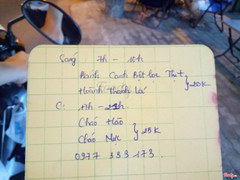 Sáng 7h - 10h
Bánh Canh Bột Lọc Thịt
Hoành Thánh Lá } 20K
C: 17h - 22h
Cháo Hào
Cháo Mực } 25K
0977 553 273.